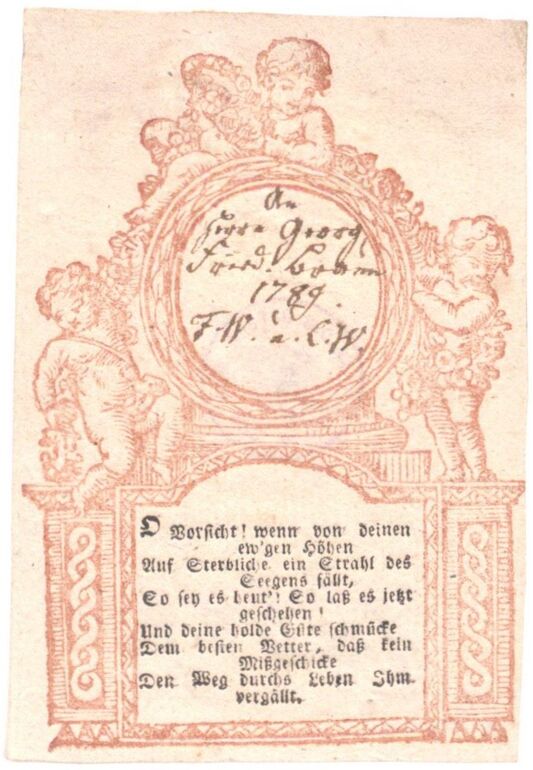 An
Herrn Georg
Fried. Braun
1789.
F. W. u. C. W.
O Vorsicht! wenn von deinen
ew'gen Höhen
Auf Sterbliche ein Strahl des
Seegens fällt,
So sey es heut'! So laß es jetzt
geschehen!
Und deine holde Güte schmücke
Dem besten Vetter, daß kein
Mißgeschicke
Den Weg durchs Leben Ihm
vergällt.